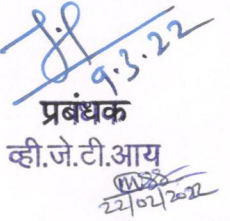 9.3.22
प्रबंधक
व्ही.जे.टी.आय
22/02/2022